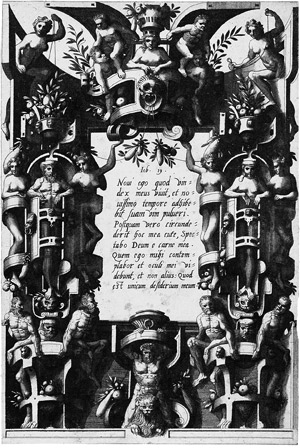 Iob. 19.
Novi ego quod vin=
dex meus vivit, et no=
vissimo tempore adhibe=
bit suam vim pulveri.
Postquam vero circunde=
derit hoc mea cute, Spec=
tabo Deum e carne mea.
Quem ego mihi contem=
plabor et oculi mei vi=
debunt, et non alius: Quod
est unicum desiderium meum